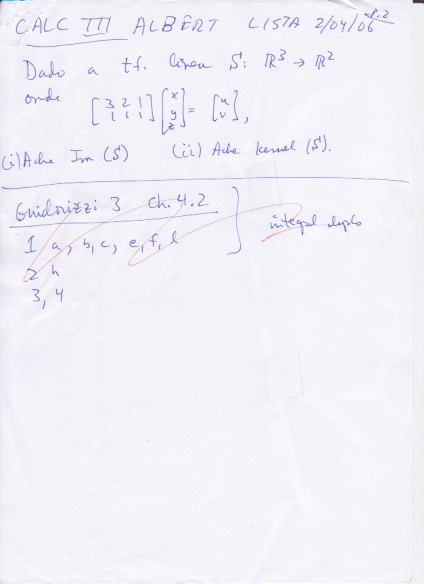 CALC III ALBERT LISTA 2/04/06 P.2
Dado a tf. linear S: ℝ³ → ℝ²
onde [3 2 1; 1 1 1] [x; y; z] = [u; v],
(i) Ache Im (S) (ii) Ache kernel (S).
Guidorizzi 3 Ch. 4.2
1 a, b, c, e, f, l
integral dupla
2 h
3, 4